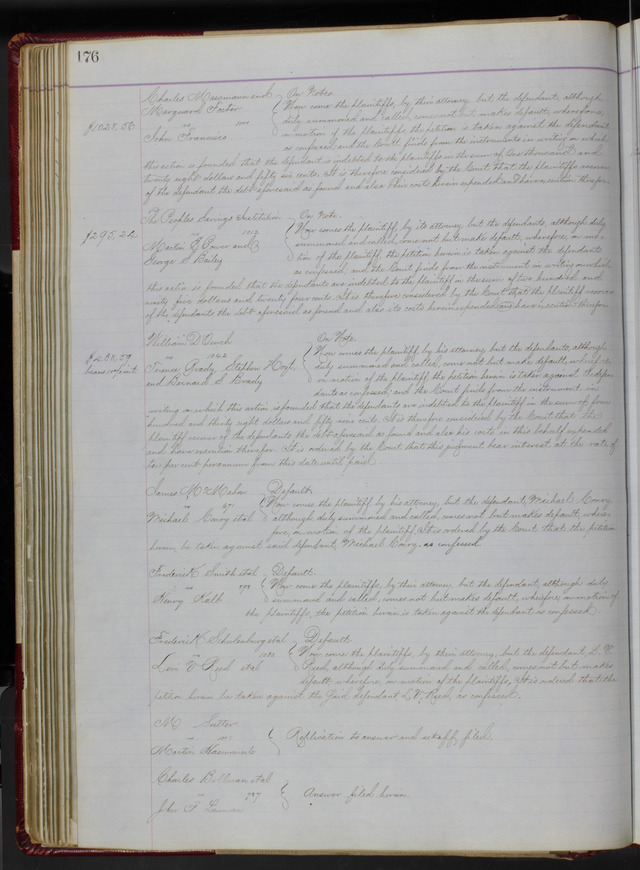 176
Charles and On Notes.
Marquard Forster Now come the plaintiffs, by their attorney but the defendants, although
vs duly summoned and called, come not but make default, wherefore,
$1028.56 John Francisco on motion of the plaintiffs the petition is taken against the defendant
as confessed, and the Court finds from the instruments in writing on which
this action is founded that the defendant is indebted to the plaintiffs in the sum of One thousand and
twenty eight dollars and fifty six cents. It is therefore considered by the Court, that the plaintiffs recover
of the defendant the debt aforesaid as found and also their costs herein expended and have execution therefor.
The Peoples Savings Institution On Note.
vs Now comes the plaintiff, by its attorney, but the defendants, although duly
$295.24 Martin E. Power and summoned and called, come not but make default, wherefore, on mo-
George S Bailey tion of the plaintiff, the petition herein is taken against the defendants
as confessed, and the Court finds from the instrument in writing on which
this action is founded that the defendants are indebted to the plaintiff in the sum of two hundred and
ninety five dollars and twenty four cents. It is therefore considered by the Court that the plaintiff recover
of the defendants the debt aforesaid as found and also its costs herein expended and have execution therefor.
William D On Note.
vs 1042 Now comes the plaintiff by his attorney, but the defendants, although
$438.59 Terence Grady, Stephen Hoyt, duly summoned and called, come not but make default, wherefore,
bears 10 pr cnt and Bernard S Brady on motion of the plaintiff, the petition herein is taken against the defen-
dants as confessed, and the Court finds from the instrument in
writing on which this action is founded that the defendants are indebted to the plaintiff in the sum of four
hundred and thirty eight dollars and fifty nine cents. It is therefore considered by the Court that the
plaintiff recover of the defendants the debt aforesaid as found and also his costs in this behalf expended
and have execution therefor. It is ordered by the Court that this judgment bear interest at the rate of
ten per cent per annum from this date until paid.
James McMahon Default.
vs 871 Now comes the plaintiff by his attorney, but the defendant, Michael Conry
Michael Conry et al although duly summoned and called, comes not but makes default, where-
fore, on motion of the plaintiff, It is ordered by the Court that the petition
herein, be taken against said defendant, Michael Conry, as confessed
Frederick Smith et al Default.
vs Now come the plaintiffs, by their attorney, but the defendant, although duly
Henry Kalb summoned and called, comes not but makes default, wherefore, on motion of
the plaintiffs, the petition herein is taken against the defendant as confessed.
Frederick Schulenburg et al Default.
vs Now come the plaintiffs, by their attorney, but the defendant, L. V.
Levi V Reed et al Reed, although duly summoned and called, comes not but makes
default wherefore, on motion of the plaintiffs, It is ordered that the
petition herein be taken against the said defendant L. V. Reed, as confessed.
M Sutter
vs Replication to answer and set off, filed.
Martin
Charles Bellman et al
vs 797 Answer filed herein.
John F